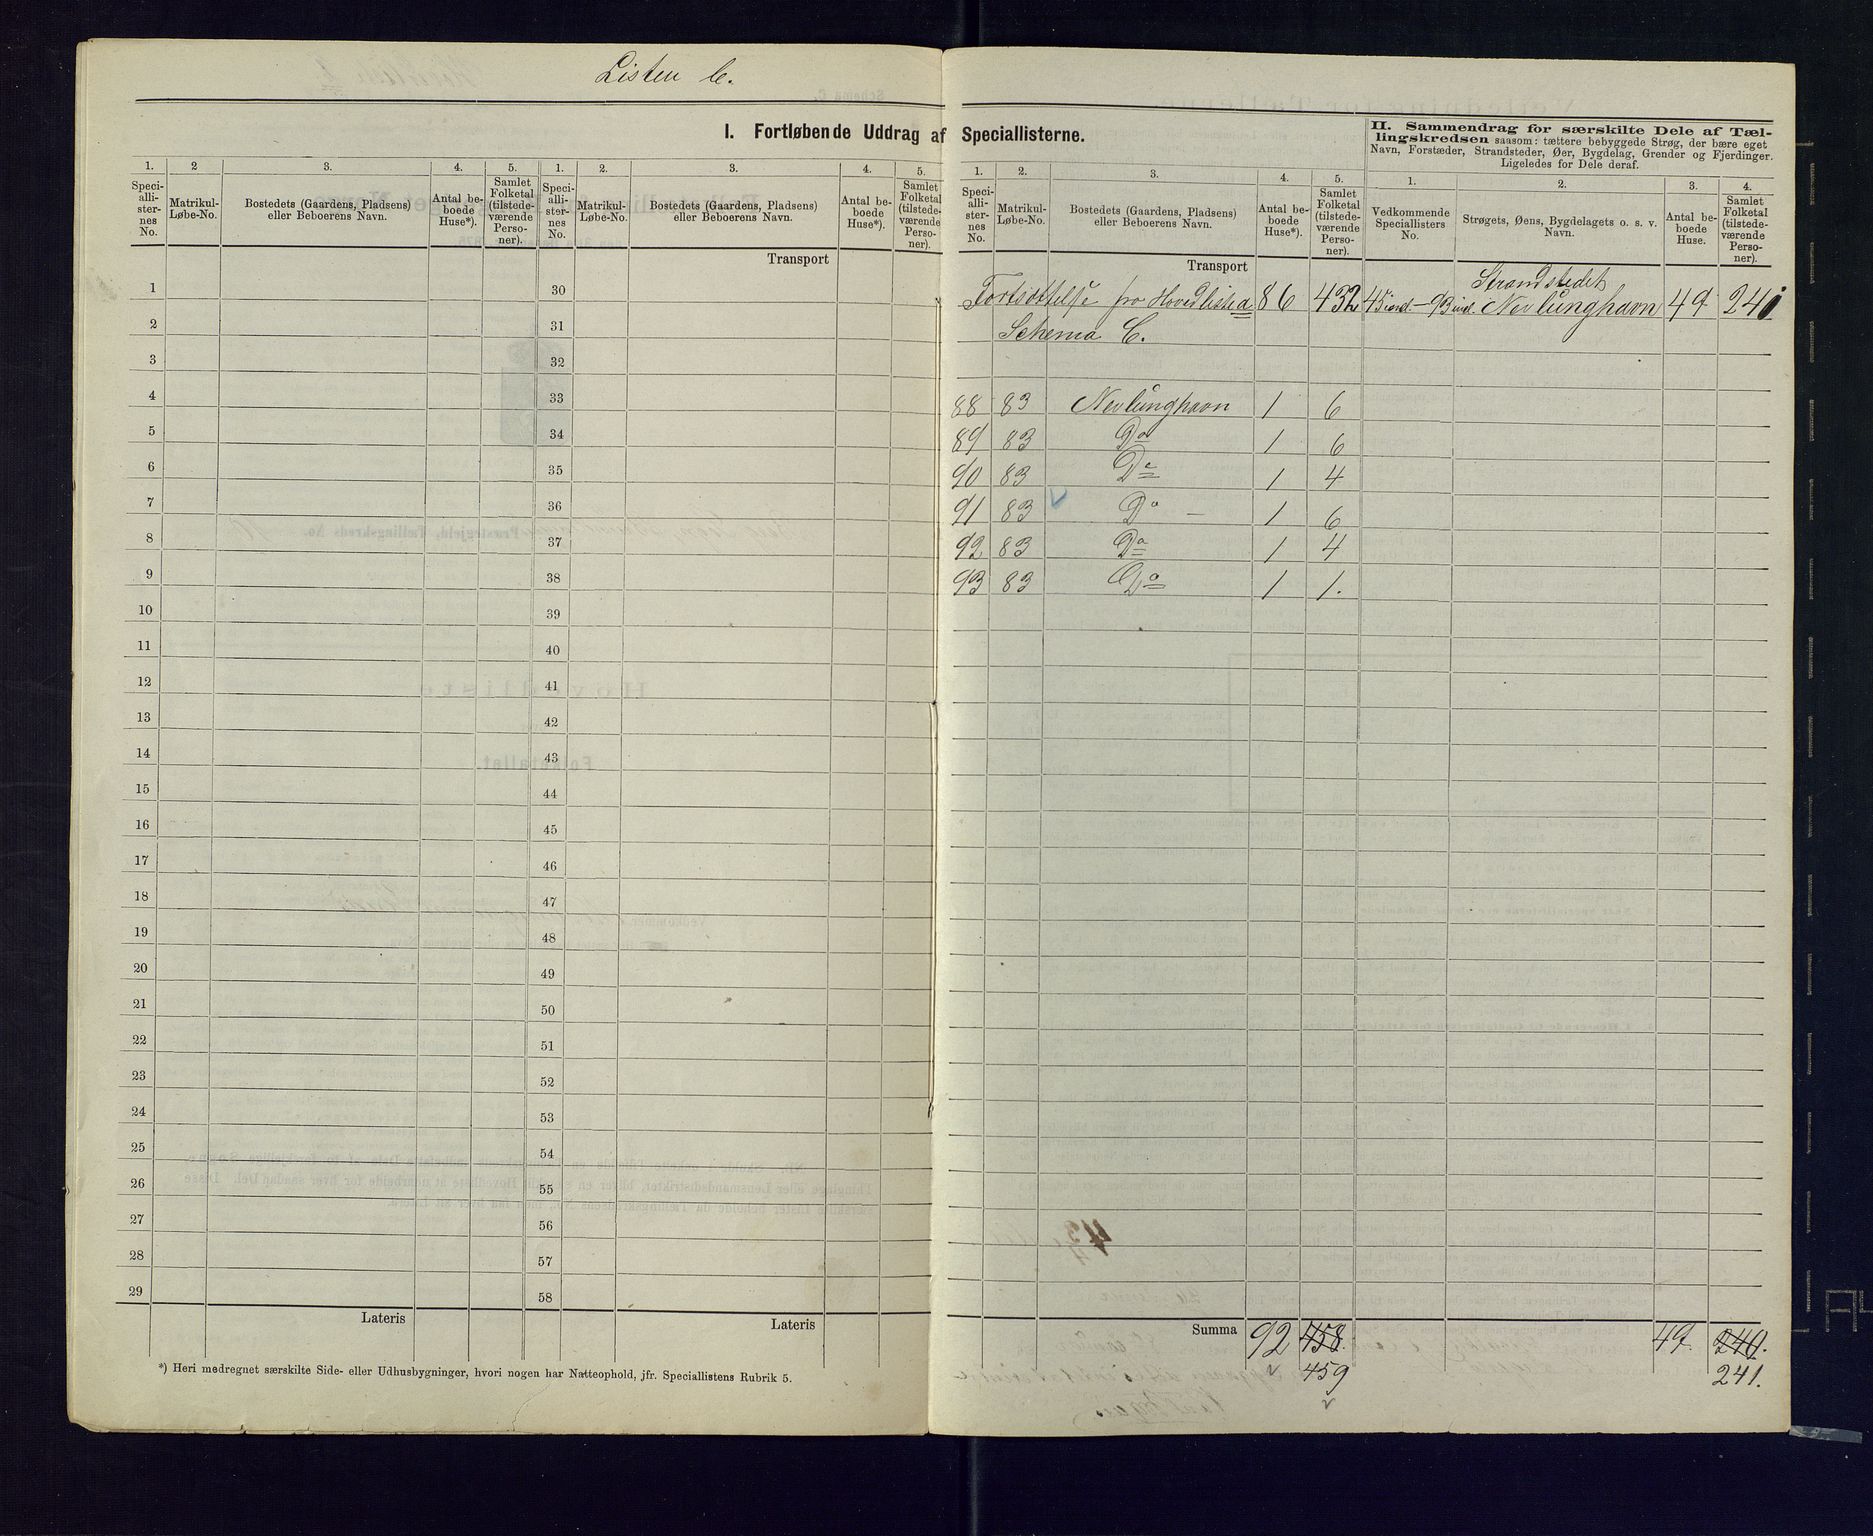 Listen C.
I. Fortløbende Uddrag af Speciallisterne.
II. Sammendrag for særskilte Dele af Tæl-
lingskredsen saasom: tættere bebyggede Strøg, der bære eget
Navn, Forstæder, Strandsteder, Øer, Bygdelag, Grender og Fjerdinger.
Ligeledes for Dele deraf.
1. 2 3. 4. 5. 1. 2. 3. 4. 5.
Speci-alli-ster-nes No. Matrikul-Løbe-No. Bostedets (Gaardens, Pladsens) eller Beboerens Navn. Antal be-boede Huse*). Samlet Folketal (tilstede-værende Perso-ner). Speci-alli-ster-nes No. Matrikul-Løbe-No. Bostedets (Gaardens, Pladsens) eller Beboerens Navn. Antal be-boede Huse*). Samlet Folketal (tilstede-værende Perso-ner).
Transport
1 30
2 31
3 32
4 33
5 34
6 35
7 36
8 37
9 38
10 39
11 40
12 41
13 42
14 43
15 44
16 45
17 46
18 47
19 48
20 49
21 50
22 51
23 52
24 53
25 54
26 55
27 56
28 57
29 58
Lateris Lateris
*) Heri medregnet særskilte Side- eller Udhusbygninger, hvori nogen har Natteophold, jfr. Speciallistens Rubrik 5.
1. 2. 3. 4. 5. 1. 2. 3. 4.
Speci-alli-ster-nes No. Matrikul-Løbe-No. Bostedets (Gaardens, Pladsens) eller Beboerens Navn. Antal be-boede Huse*). Samlet Folketal (tilstede-værende Perso-ner). Vedkommende Speciallisters No. Strøgets, Øens, Bygdelagets o. s. v. Navn. Antal be-boede Huse. Samlet Folketal (tilstede-værende Perso-ner).
Transport
Strandstedet
Fortsættelse fra Hovedlisten 86 432 45 incl. — 93 incl. Nevlunghavn 49 241
Schema C.
88 83 Nevlunghavn 1 6
89 83 Do 1 6
90 83 Do 1 4
91 83 Do — 1 6
92 83 Do 1 4
93 83 Do 1 1.
Summa 92 458. 49. 240.
459 241.